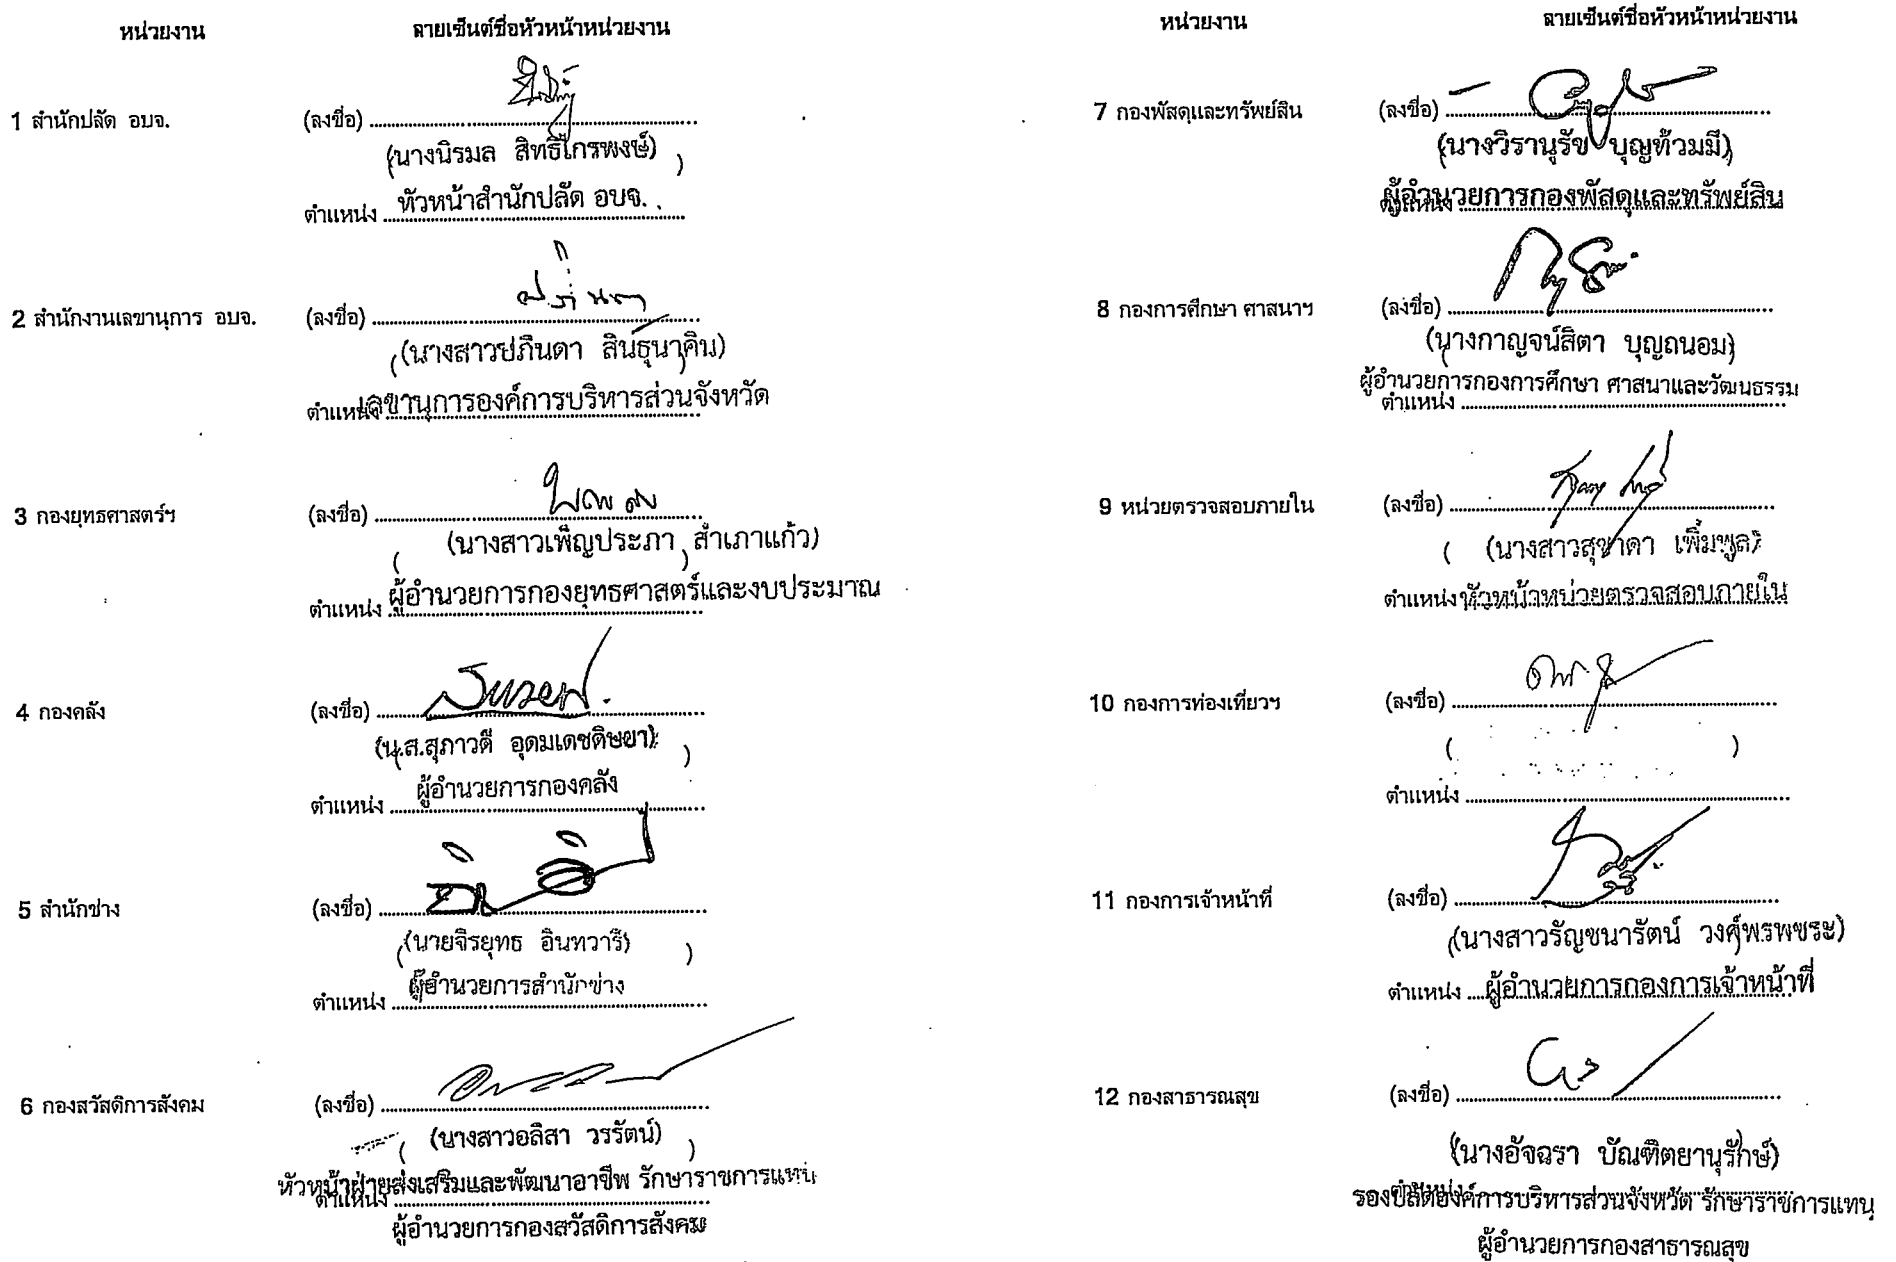 หน่วยงาน
ลายเซ็นต์ชื่อหัวหน้าหน่วยงาน
1 สำนักปลัด อบจ.
(ลงชื่อ)
(นางนิรมล สิทธิไกรพงษ์)
ตำแหน่ง หัวหน้าสำนักปลัด อบจ.
2 สำนักงานเลขานุการ อบจ.
(ลงชื่อ)
(นางสาวปภินดา สินธุนาคิน)
ตำแหน่ง เลขานุการองค์การบริหารส่วนจังหวัด
3 กองยุทธศาสตร์ฯ
(ลงชื่อ)
(นางสาวเพ็ญประภา สำเภาแก้ว)
ตำแหน่ง ผู้อำนวยการกองยุทธศาสตร์และงบประมาณ
4 กองคลัง
(ลงชื่อ)
(น.ส.สุภาวดี อุดมเดชดิษยา)
ตำแหน่ง ผู้อำนวยการกองคลัง
5 สำนักช่าง
(ลงชื่อ)
(นายจิรยุทธ อินทวารี)
ตำแหน่ง ผู้อำนวยการสำนักช่าง
6 กองสวัสดิการสังคม
(ลงชื่อ)
(นางสาวอลิสา วรรัตน์)
หัวหน้าฝ่ายส่งเสริมและพัฒนาอาชีพ รักษาราชการแทน
ตำแหน่ง
ผู้อำนวยการกองสวัสดิการสังคม
หน่วยงาน
ลายเซ็นต์ชื่อหัวหน้าหน่วยงาน
7 กองพัสดุและทรัพย์สิน
(ลงชื่อ)
(นางวิรานุรัช บุญท้วมมี)
ตำแหน่ง ผู้อำนวยการกองพัสดุและทรัพย์สิน
8 กองการศึกษา ศาสนาฯ
(ลงชื่อ)
(นางกาญจน์สิตา บุญถนอม)
ผู้อำนวยการกองการศึกษา ศาสนาและวัฒนธรรม
ตำแหน่ง
9 หน่วยตรวจสอบภายใน
(ลงชื่อ)
(นางสาวสุชาดา เพิ่มพูล)
ตำแหน่ง หัวหน้าหน่วยตรวจสอบภายใน
10 กองการท่องเที่ยวฯ
(ลงชื่อ)
( )
ตำแหน่ง
11 กองการเจ้าหน้าที่
(ลงชื่อ)
(นางสาวรัญชนารัตน์ วงศ์พรพชระ)
ตำแหน่ง ผู้อำนวยการกองการเจ้าหน้าที่
12 กองสาธารณสุข
(ลงชื่อ)
(นางอัจฉรา บัณฑิตยานุรักษ์)
ตำแหน่ง รองปลัดองค์การบริหารส่วนจังหวัด รักษาราชการแทน
ผู้อำนวยการกองสาธารณสุข